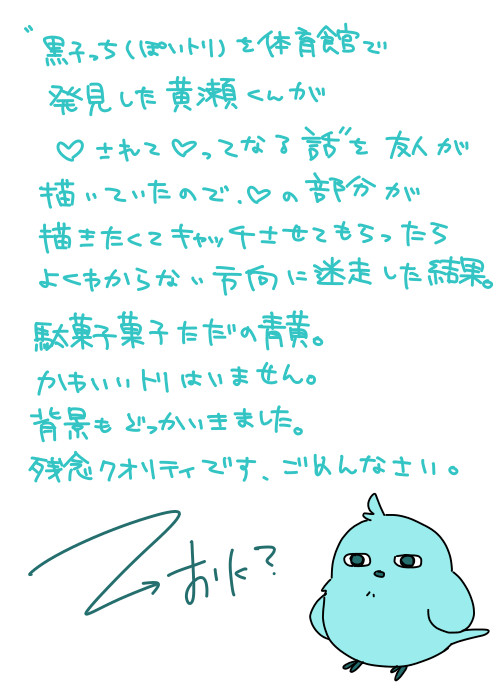 "黒子っち(ぽいトリ)を体育館で
発見した黄瀬くんが
♡されて♡ってなる話"を友人が
描いていたので、♡の部分が
描きたくてキャッチさせてもらったら
よくわからない方向に迷走した結果。
駄菓子菓子ただの青黄。
かわいいトリはいません。
背景もどっかいきました。
残念クオリティです、ごめんなさい。
おに?